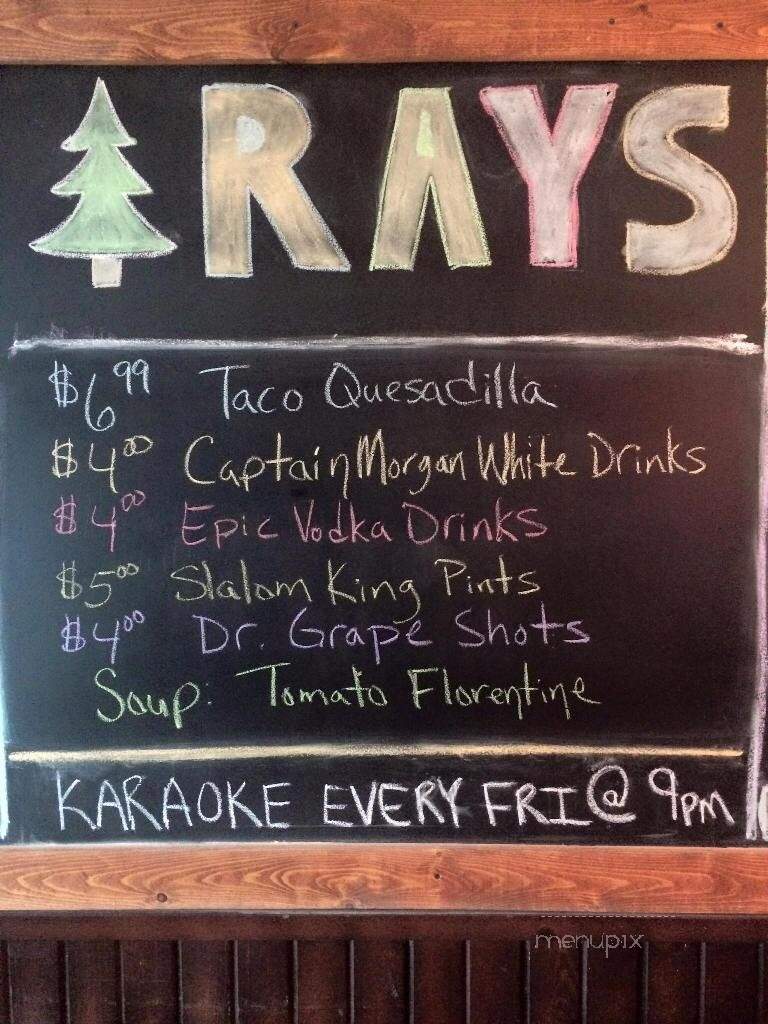 RAYS
$6.99 Taco Quesadilla
$4.00 Captain Morgan White Drinks
$4.00 Epic Vodka Drinks
$5.00 Slalom King Pints
$4.00 Dr. Grape Shots
Soup: Tomato Florentine
KARAOKE EVERY FRI @ 9PM
menupix